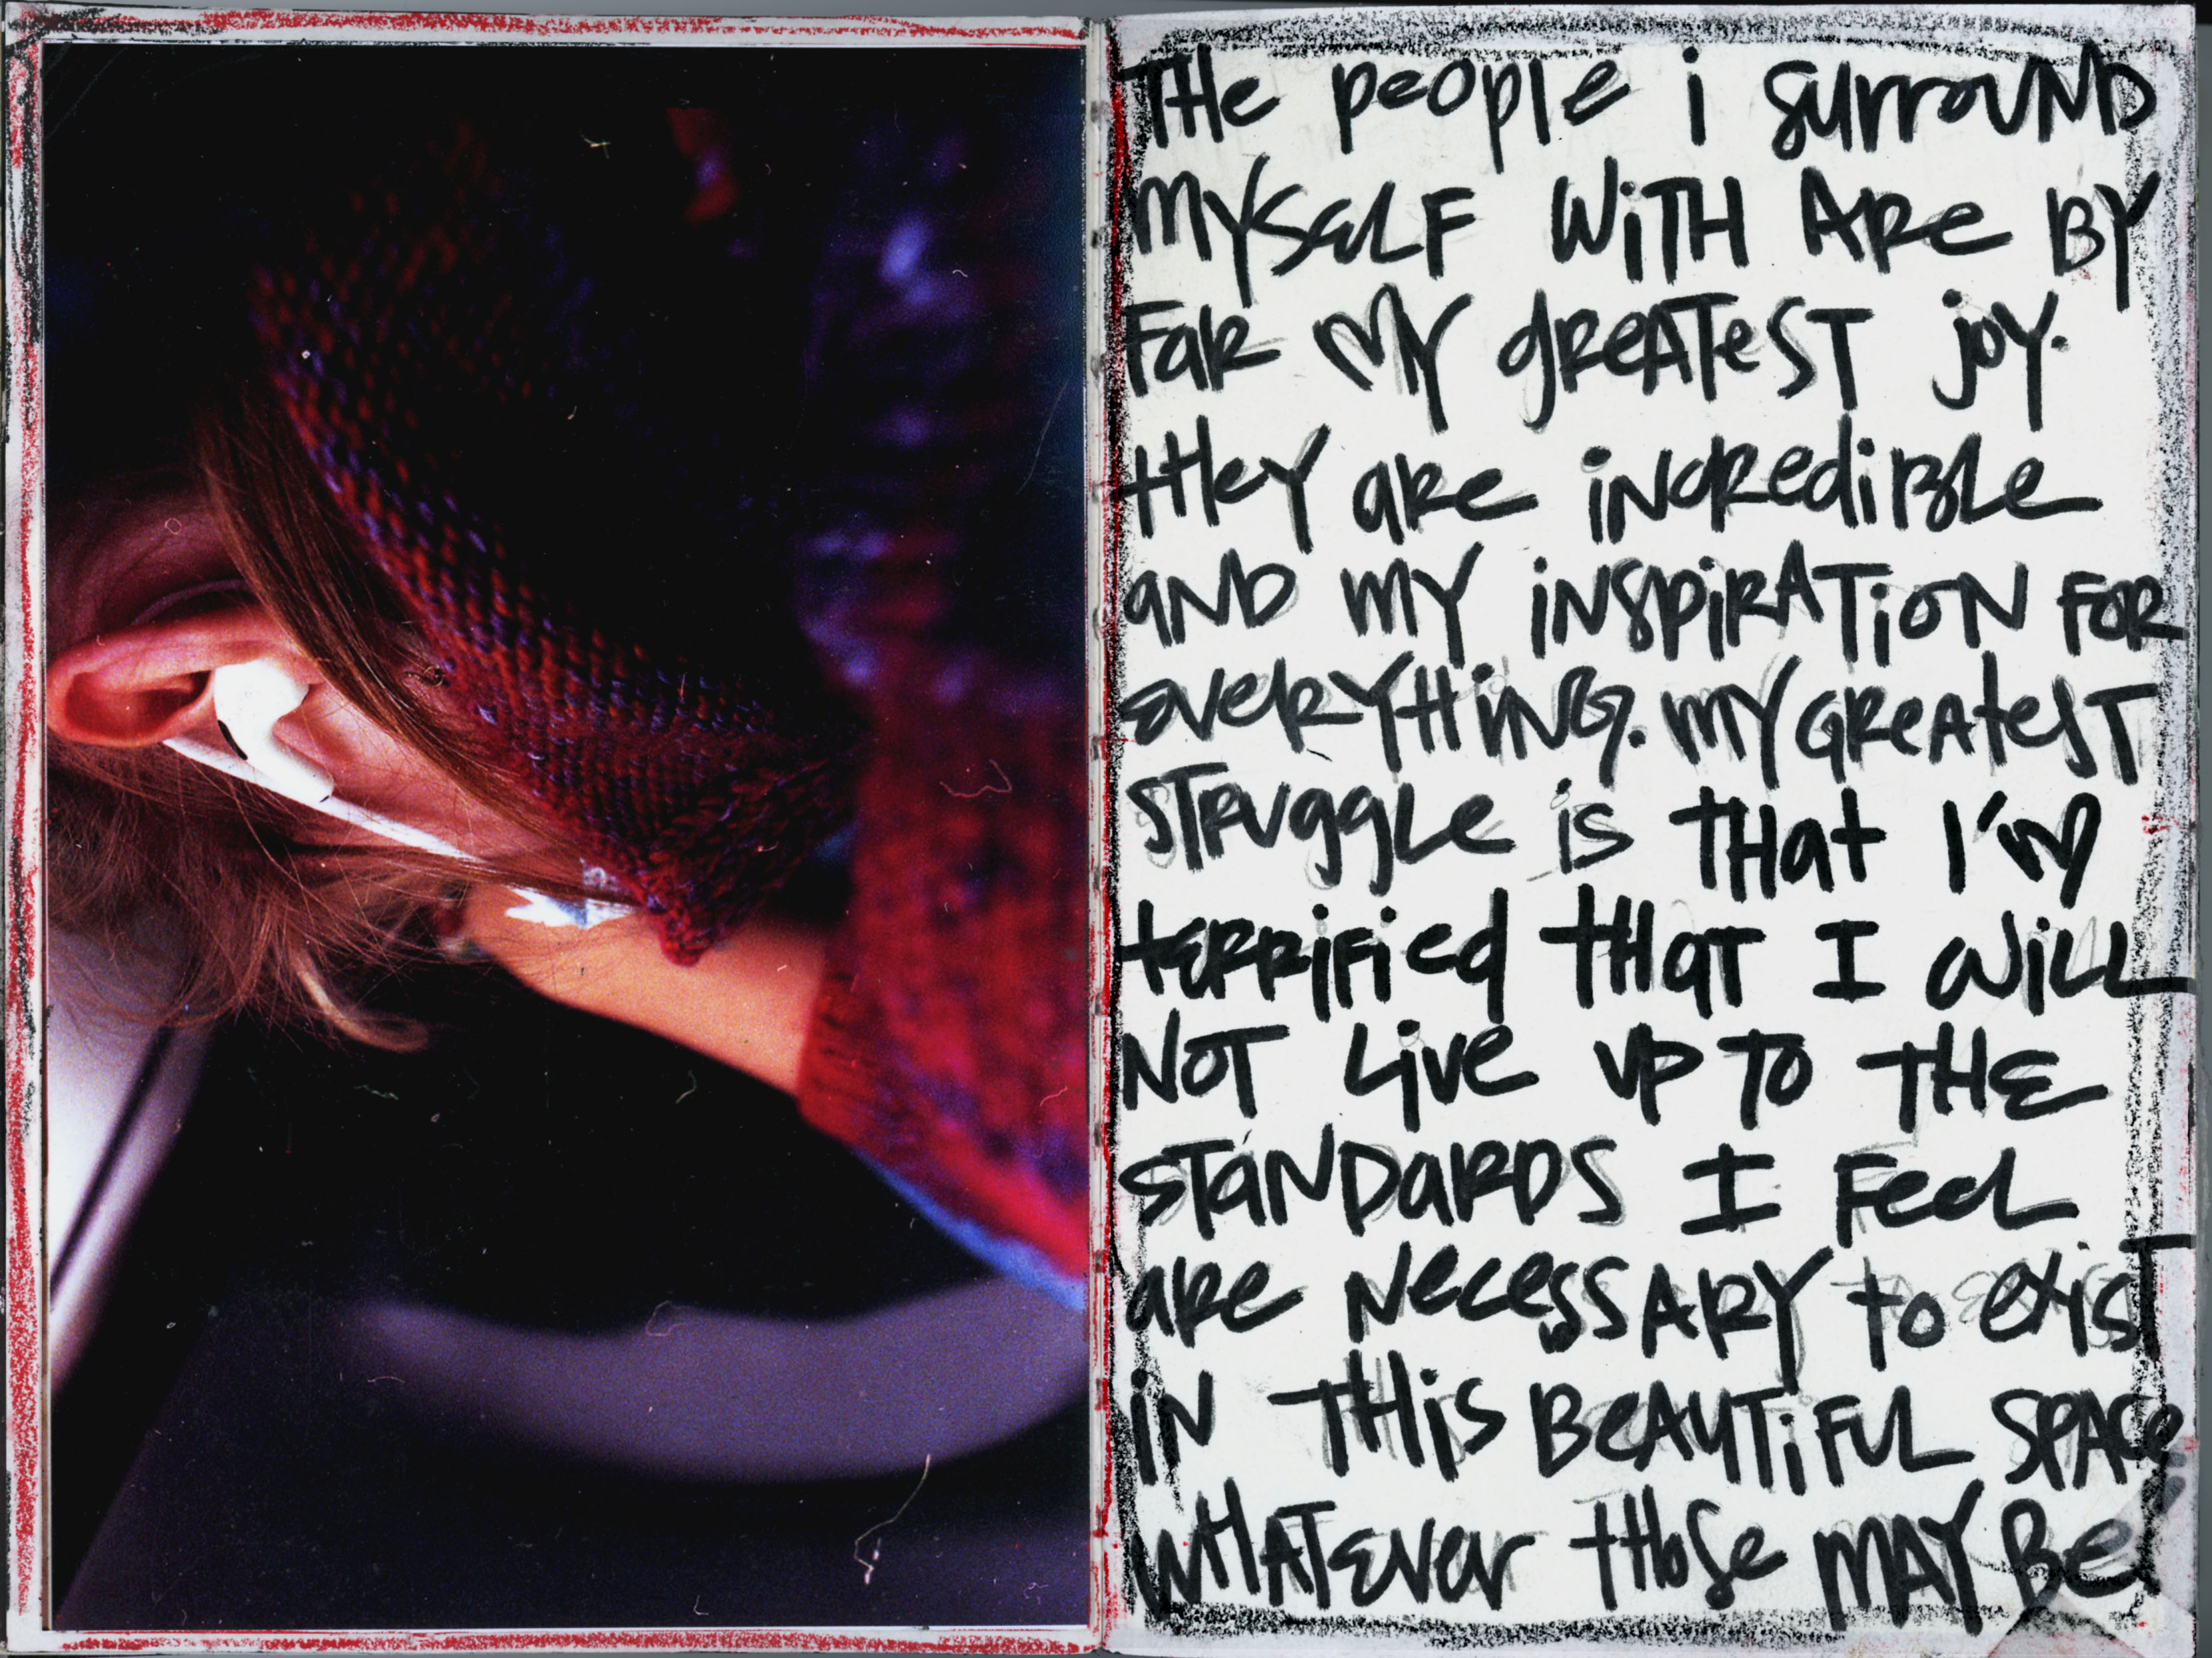 THe people i surrouND
MYSELF WiTH ARe BY
FaR MY gReATeST joy.
tHeY aRe iNcRediBLe
aND MY iNSPiRATioN FoR
eveRYtHiNG. MY GReAtesT
STRuggLe is tHat I'M
teRRiFied tHaT I WiLL
NOT Live uP TO THE
STaNDaRDS I FeeL
aRe NecessARY to exisT
iN THis BeAUTiFUL SPAce
WHATEVer tHose MAY Be